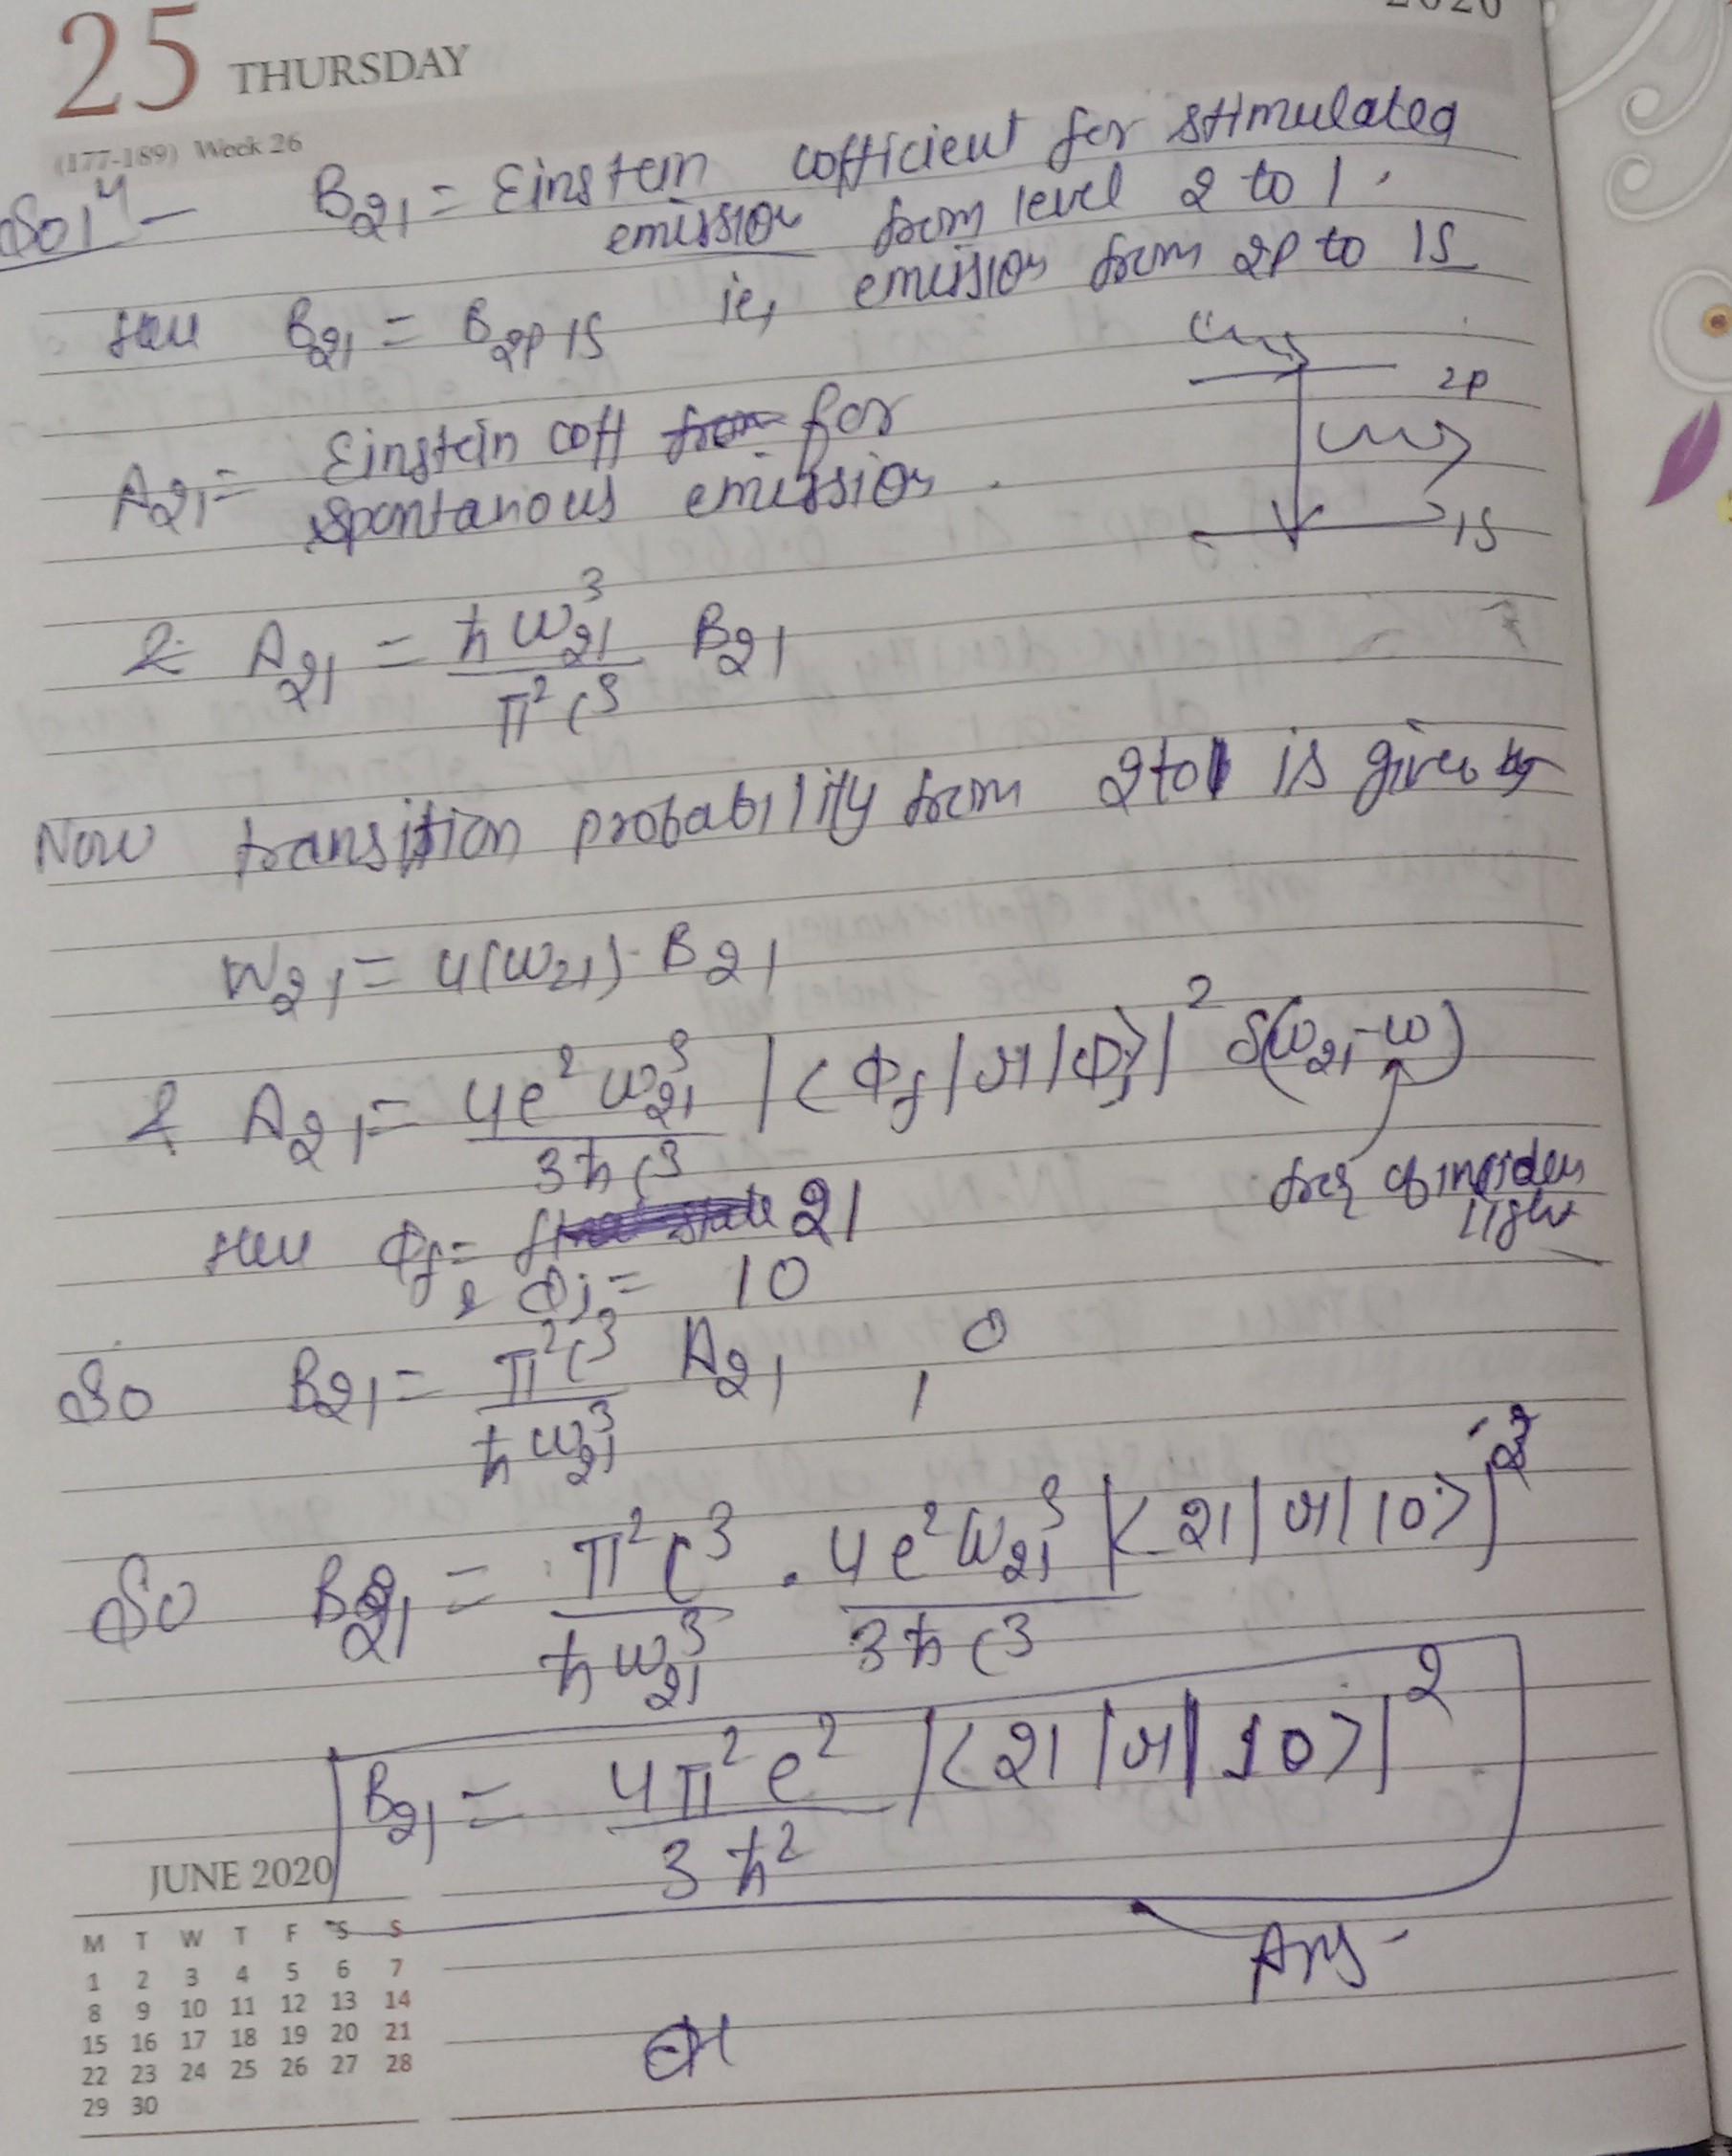 25 THURSDAY
(177-189) Week 26
Solⁿ - B₂₁ = Einstein cofficient for stimulated
emission from level 2 to 1.
Here B₂₁ = B₂P 1S ie, emission from 2P to 1S
2P
A₂₁ = Einstein coff for
spontanous emission.
1S
& A₂₁ = ħω₂₁³ / π²c³ B₂₁
Now transition probability from 2 to 1 is given by
W₂₁ = u(ω₂₁) · B₂₁
& A₂₁ = 4e²ω₂₁³ / 3ħc³ |<Φf|r|Φi>|² δ(ω₂₁-ω)
freq of inciden
light
Here Φf = 21
& Φi = 10
So B₂₁ = π²c³ / ħω₂₁³ A₂₁ , 0
So B₂₁ = π²c³ / ħω₂₁³ · 4e²ω₂₁³ / 3ħc³ |<21|r|10>|²
B₂₁ = 4π²e² / 3ħ² |<21|r|10>|²
Ans -
JUNE 2020
M T W T F S S
1 2 3 4 5 6 7
8 9 10 11 12 13 14
15 16 17 18 19 20 21
22 23 24 25 26 27 28
29 30